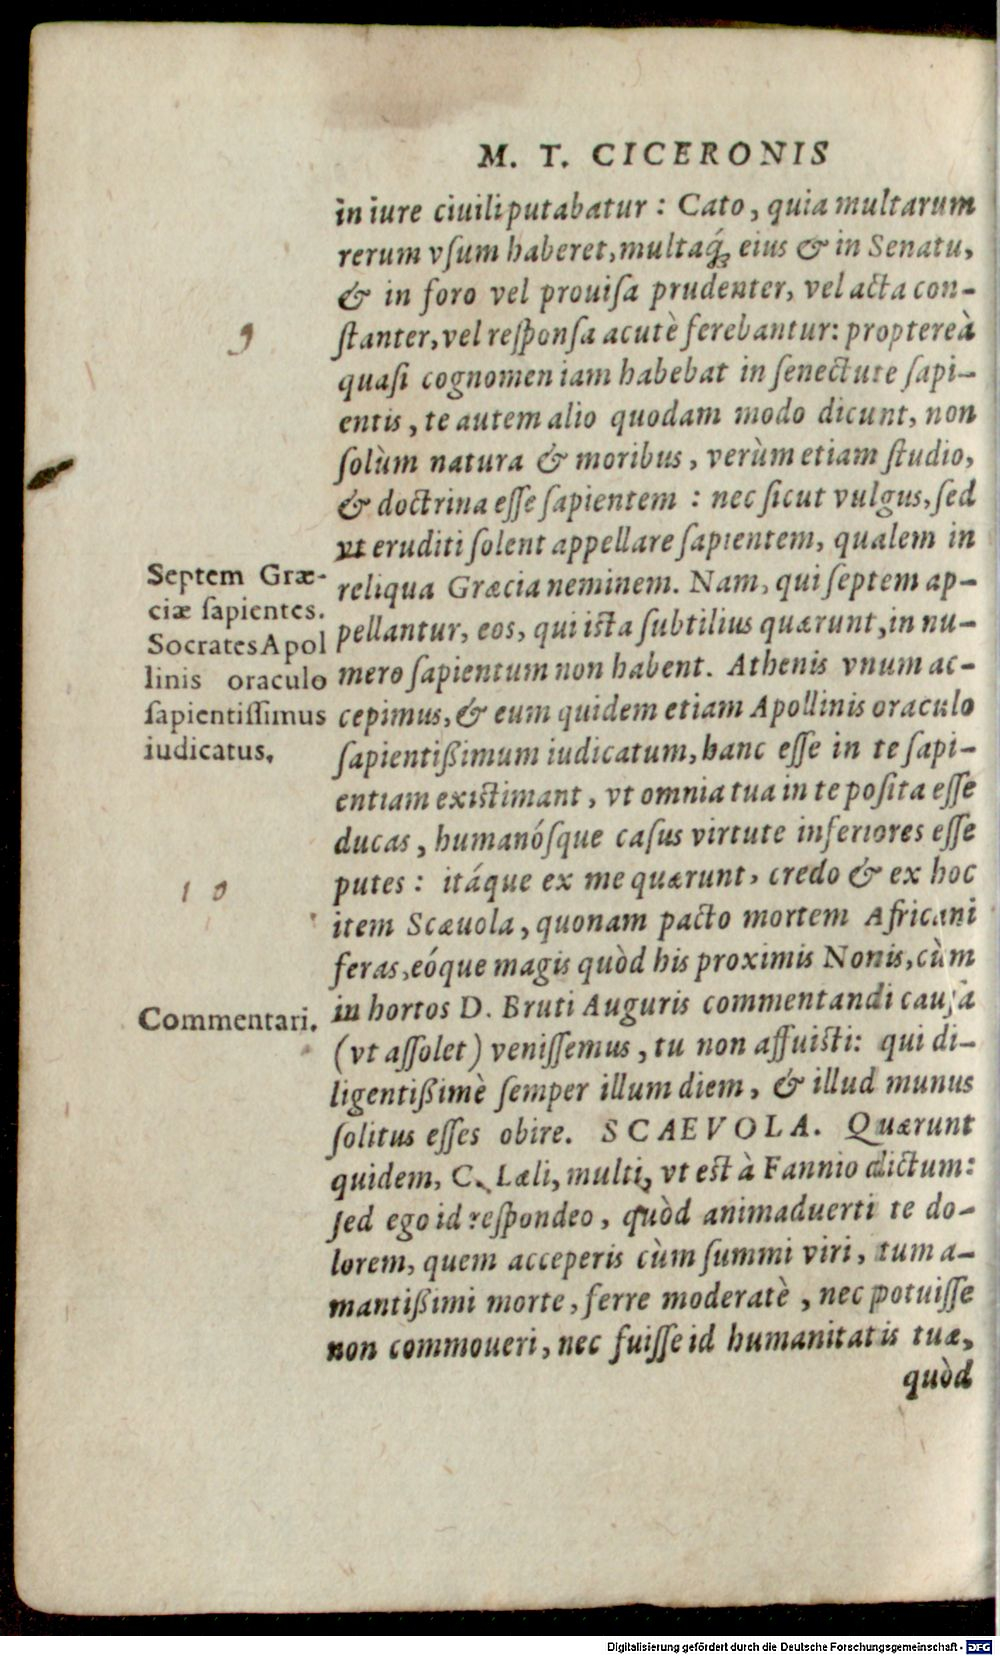 M. T. CICERONIS
in iure ciuili putabatur : Cato, quia multarum
rerum vſum haberet, multaq́; eius & in Senatu,
& in foro vel prouiſa prudenter, vel acta con-
ſtanter, vel reſponſa acutè ferebantur: propterea̓
quaſi cognomen iam habebat in ſenectute ſapi-
entis, te autem alio quodam modo dicunt, non
ſolùm natura & moribus, verùm etiam ſtudio,
& doctrina eſſe ſapientem : nec ſicut vulgus, ſed
vt eruditi ſolent appellare ſapientem, qualem in
reliqua Græcia neminem. Nam, qui ſeptem ap-
pellantur, eos, qui iſta ſubtilius quærunt, in nu-
mero ſapientum non habent. Athenis vnum ac-
cepimus, & eum quidem etiam Apollinis oraculo
ſapientißimum iudicatum, hanc eſſe in te ſapi-
entiam existimant, vt omnia tua in te poſita eſſe
ducas, humanóſque caſus virtute inferiores eſſe
putes : itáque ex me quærunt, credo & ex hoc
item Scæuola, quonam pacto mortem Africani
feras, eóque magis quòd his proximis Nonis, cùm
in hortos D. Bruti Auguris commentandi cauſa
(vt aſſolet) veniſſemus, tu non affuiſti: qui di-
ligentißimè ſemper illum diem, & illud munus
ſolitus eſſes obire. SCAEVOLA. Quærunt
quidem, C. Læli, multi, vt est à Fannio dictum:
ſed ego id reſpondeo, quòd animaduerti te do-
lorem, quem acceperis cùm ſummi viri, tum a-
mantißimi morte, ferre moderatè, nec potuiſſe
non commoueri, nec fuiſſe id humanitatis tuæ,
quòd
9
Septem Græ-
ciæ ſapientes.
Socrates Apol
linis oraculo
ſapientiſſimus
iudicatus.
10
Commentari.
Digitalisierung gefördert durch die Deutsche Forschungsgemeinschaft - DFG